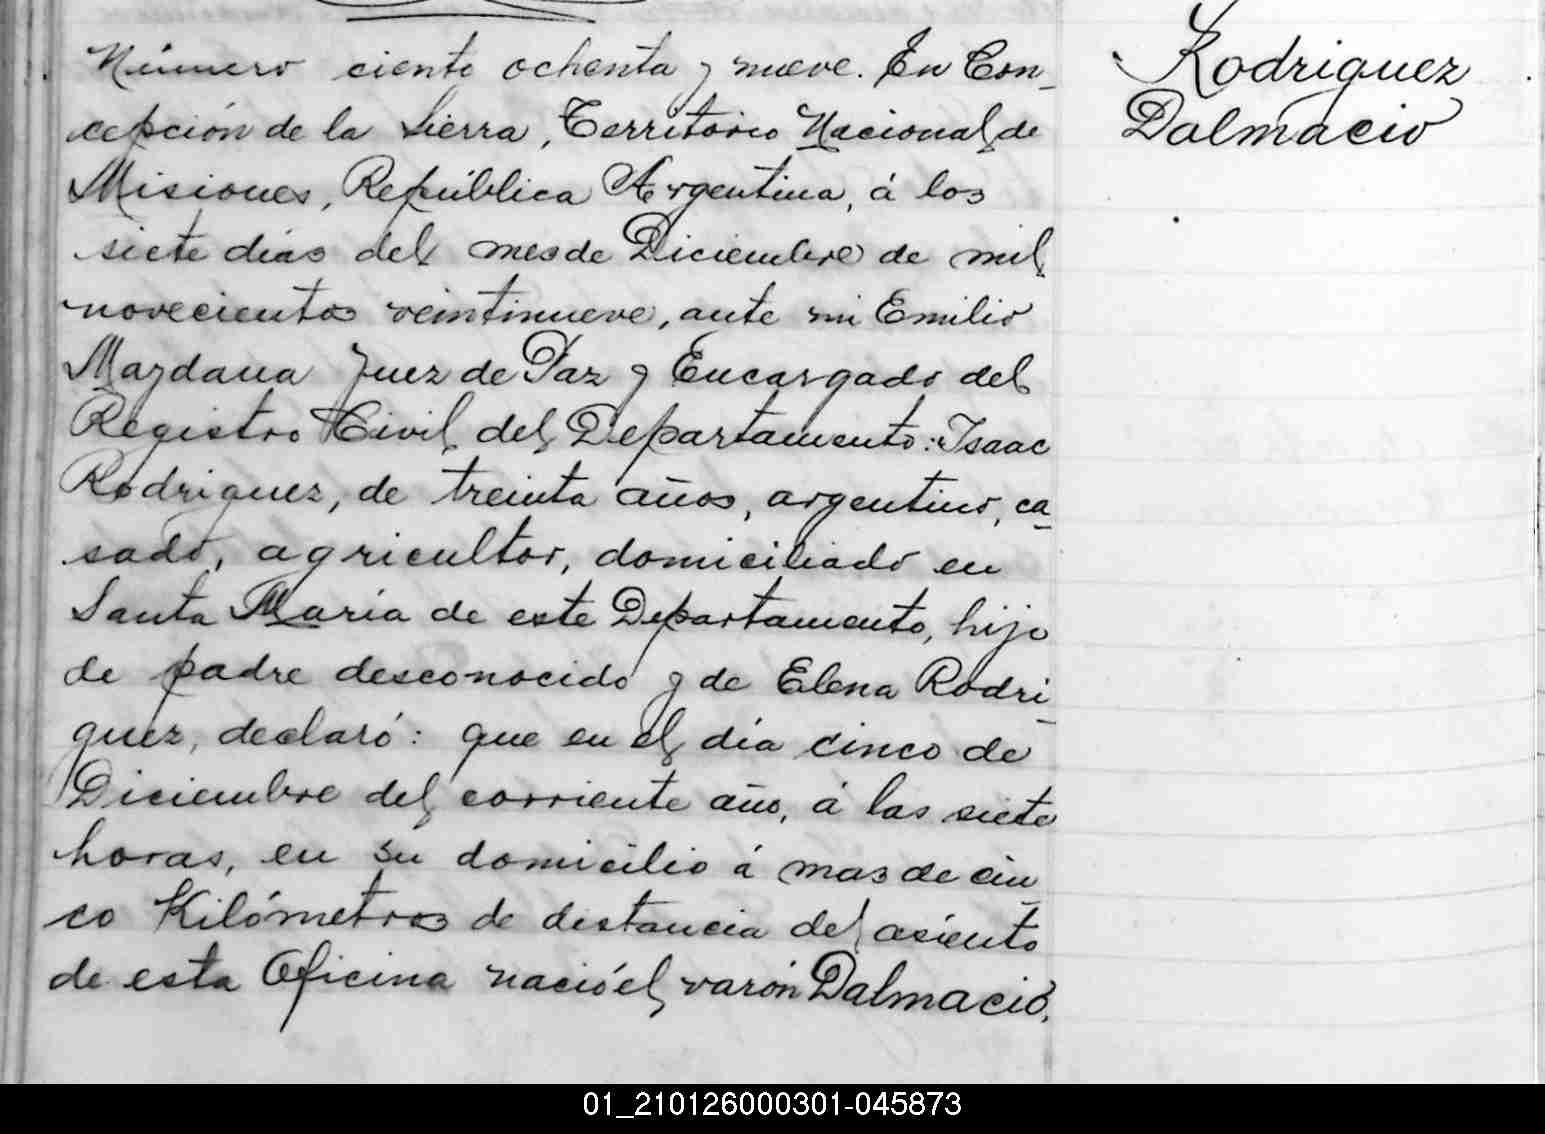 Número ciento ochenta y nueve. En Con-
cepción de la Sierra, Territorio Nacional de
Misiones, República Argentina, á los
siete días del mes de Diciembre de mil
novecientos veintinueve, ante mi Emilio
Maydana Juez de Paz y Encargado del
Registro Civil del Departamento: Isaac
Rodriguez, de treinta años, argentino, ca-
sado, agricultor, domiciliado en
Santa María de este Departamento, hijo
de padre desconocido y de Elena Rodri-
guez, declaró: que en el día cinco de
Diciembre del corriente año, á las siete
horas, en su domicilio á mas de cin-
co Kilómetros de distancia del asiento
de esta Oficina nació el varón Dalmacio,
Rodriguez
Dalmacio
01_210126000301-045873